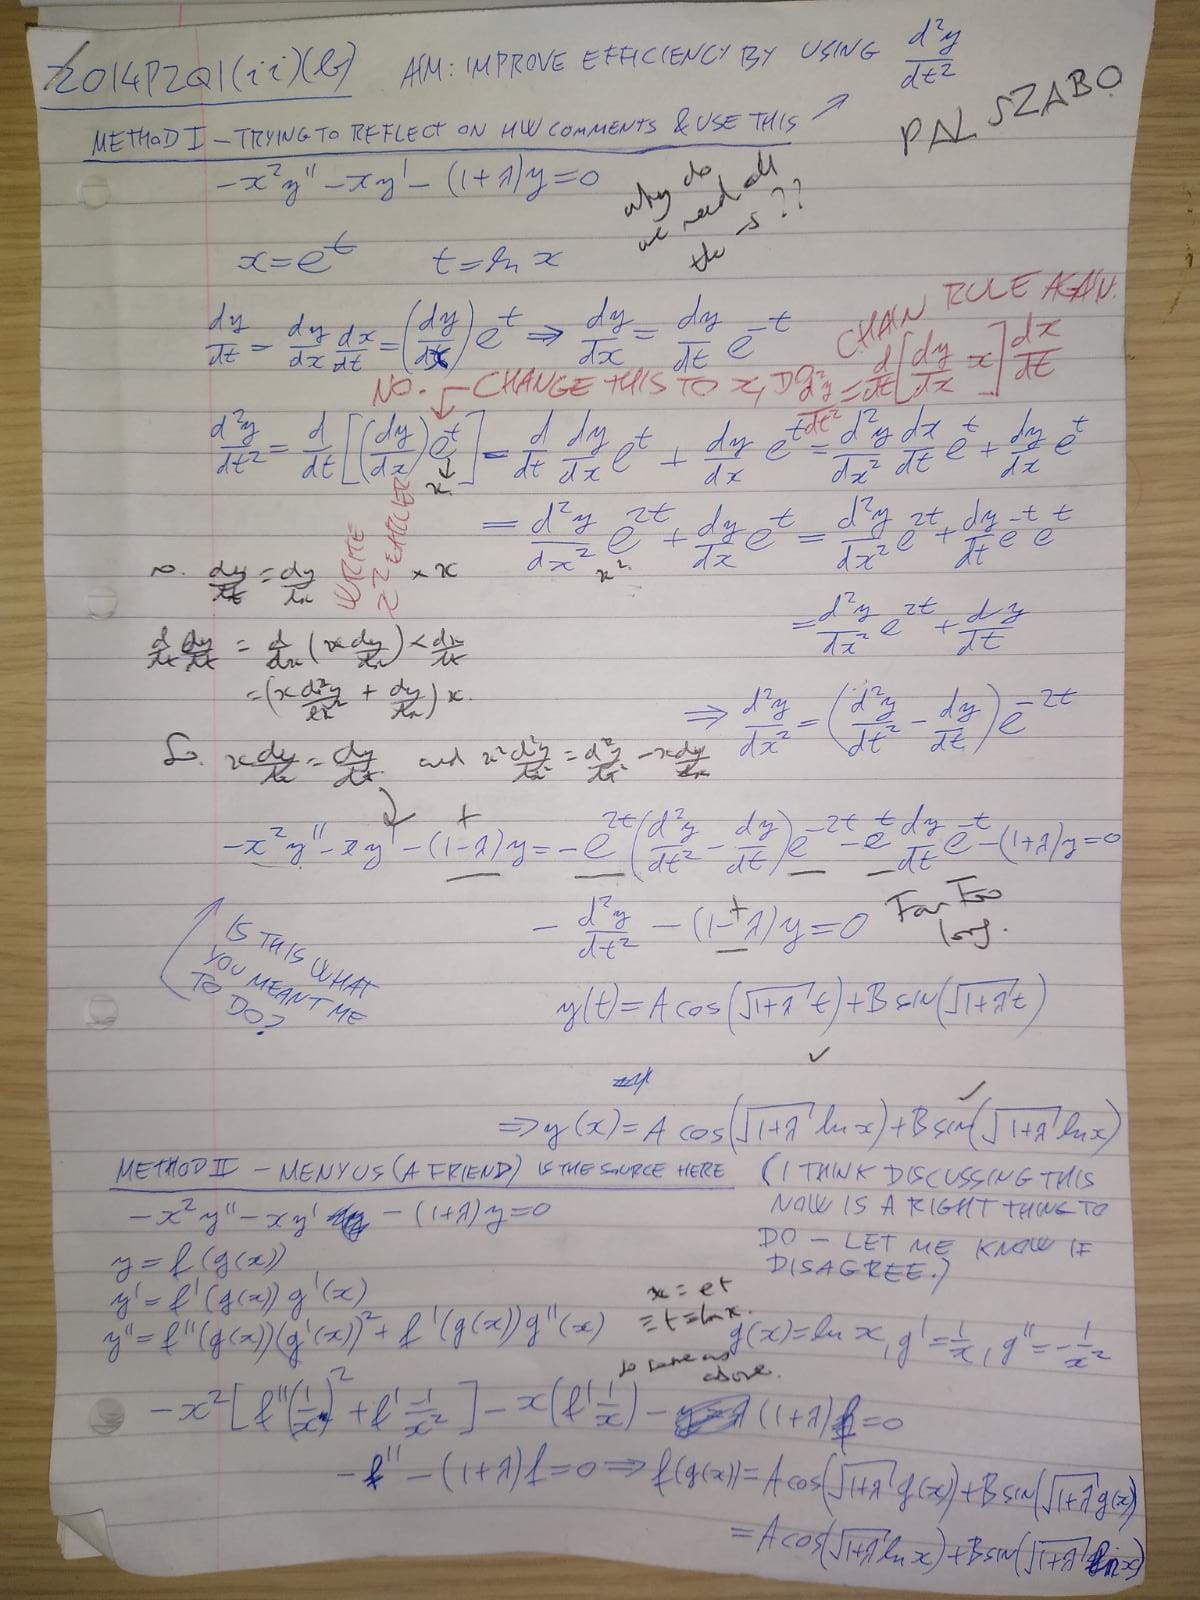 2014P2Q1(ii)(b) AIM: IMPROVE EFFICIENCY BY USING d²y/dt²
PAL SZABO
METHOD I – TRYING TO REFLECT ON HW COMMENTS & USE THIS
-x²y'' - xy' - (1+λ)y = 0
why do
we need all
this??
x = e^t t = ln x
CHAIN RULE AGAIN.
dy/dt = dy/dx dx/dt = (dy/dx) e^t ⇒ dy/dx = dy/dt e^-t
NO. ← CHANGE THIS TO x, d²y/dt² = d/dt [dy/dx x] dx/dt
d²y/dt² = d/dt [(dy/dx) e^t] = d/dt dy/dx e^t + dy/dx e^t = d²y/dx² dx/dt e^t + dy/dx e^t
x
WRITE
x² EARLIER
= d²y/dx² e^2t + dy/dx e^t = d²y/dx² e^2t + dy/dt e^-t e^t
x²
so. dy/dt = dy/dx × x
= d²y/dx² e^2t + dy/dt
d/dt dy/dt = d/dx (x dy/dx) × dx/dt
= (x d²y/dx² + dy/dx) x.
⇒ d²y/dx² = (d²y/dt² - dy/dt) e^-2t
So. x dy/dx = dy/dt and x² d²y/dx² = d²y/dt² - x dy/dx
+
-x²y'' - xy' - (1-λ)y = -e^2t (d²y/dt² - dy/dt) e^-2t - e^t dy/dt e^-t - (1+λ)y = 0
+
- d²y/dt² - (1-λ)y = 0
Far Too
long.
IS THIS WHAT
YOU MEANT ME
TO DO?
y(t) = A cos(√1+λ t) + B sin(√1+λ t)
✓
✓
⇒ y(x) = A cos(√1+λ ln x) + B sin(√1+λ ln x)
METHOD II – MENYUS (A FRIEND) IS THE SOURCE HERE
(I THINK DISCUSSING THIS
NOW IS A RIGHT THING TO
DO – LET ME KNOW IF
DISAGREE.)
-x²y'' - xy' - (1+λ)y = 0
y = f(g(x))
y' = f'(g(x)) g'(x)
y'' = f''(g(x))(g'(x))² + f'(g(x)) g''(x)
x = et
≡ t = ln x.
so same as
above.
g(x) = ln x, g' = 1/x, g'' = -1/x²
-x² [f''(1/x)² + f' 1/x²] - x(f' 1/x) - (1+λ)f = 0
-f'' - (1+λ)f = 0 ⇒ f(g(x)) = A cos(√1+λ g(x)) + B sin(√1+λ g(x))
= A cos(√1+λ ln x) + B sin(√1+λ ln x)